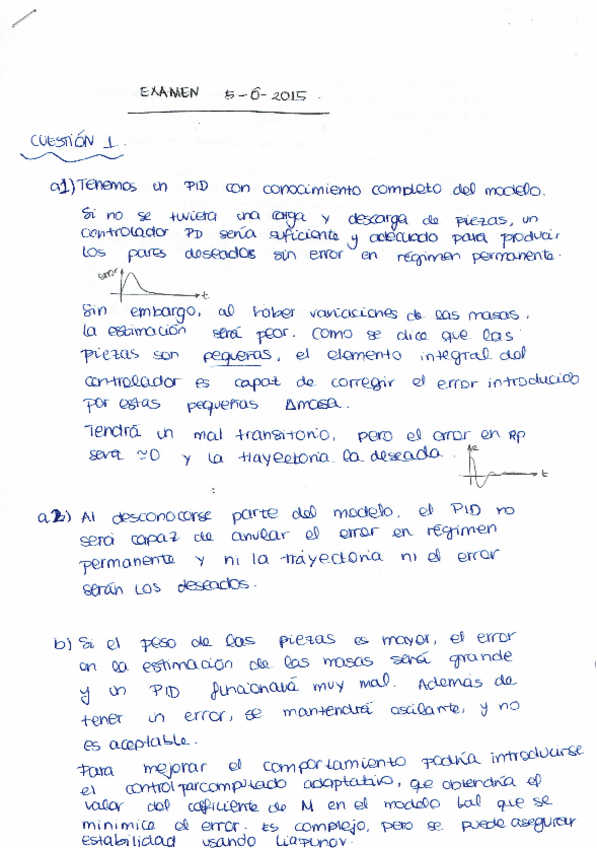 EXAMEN 5-6-2015.
CUESTIÓN 1.
a1) Tenemos un PID con conocimiento completo del modelo.
Si no se tuviera una carga y descarga de piezas, un
controlador PD sería suficiente y adecuado para producir
los pares deseados sin error en régimen permanente.
error
t
Sin embargo, al haber variaciones de las masas,
la estimación será peor. Como se dice que las
piezas son pequeñas, el elemento integral del
controlador es capaz de corregir el error introducido
por estas pequeñas Δmasa.
Tendrá un mal transitorio, pero el error en RP
será ≃0 y la trayectoria la deseada.
e
t
a2) Al desconocerse parte del modelo, el PID no
será capaz de anular el error en régimen
permanente y ni la trayectoria ni el error
serán los deseados.
b) Si el peso de las piezas es mayor, el error
en la estimación de las masas será grande
y un PID funcionará muy mal. Además de
tener un error, se mantendrá oscilante, y no
es aceptable.
Para mejorar el comportamiento podría introducirse
el control par computado adaptativo, que obtendría el
valor del coeficiente de M en el modelo tal que se
minimice el error. Es complejo, pero se puede asegurar
estabilidad usando Liapunov.